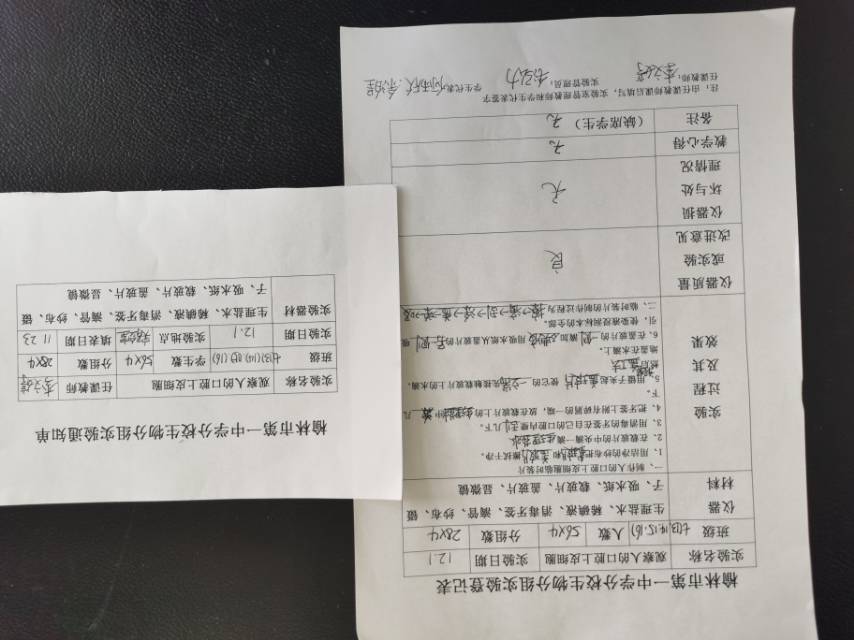 榆林市第一中学分校生物分组实验通知单
实验名称 观察人的口腔上皮细胞 任课教师
班级 七(13)(14)(15)(16) 学生数 56×4 分组数 28×4
实验日期 12.1 实验地点 实验室 填表日期 11.23
实验器材 生理盐水、稀碘液、消毒牙签、滴管、纱布、镊
子、吸水纸、载玻片、盖玻片、显微镜
榆林市第一中学分校生物分组实验登记表
实验名称 观察人的口腔上皮细胞 实验日期 12.1
班级 七(13.14.15.16) 人数 56×4 分组数 28×4
仪器材料 生理盐水、稀碘液、消毒牙签、滴管、纱布、镊
子、吸水纸、载玻片、盖玻片、显微镜
实验过程及其效果
一、制作人的口腔上皮细胞临时装片
1、用洁净的纱布把载玻片和盖玻片擦拭干净。
2、在载玻片的中央滴一滴生理盐水
3、用消毒的牙签在自己的口腔内壁刮几下。
4、把牙签上附有碎屑的一端，放在载玻片上的生理盐水中涂几
下。
5、用镊子夹起盖玻片，使它的一边先接触载玻片上的水滴，
地盖在水滴上。
6、在盖玻片的一侧滴加，用吸水纸从盖玻片的另一侧吸
引，使染液浸润标本的全部。
二、临时装片的制作过程为擦→滴→刮→涂→盖→染→吸
仪器质量或实验改进意见 良
仪器损坏与处理情况 无
教学心得 无
备注 （缺席学生） 无
注：由任课教师课后填写，实验室管理教师和学生代表签字
任课教师： 实验管理员： 学生代表：